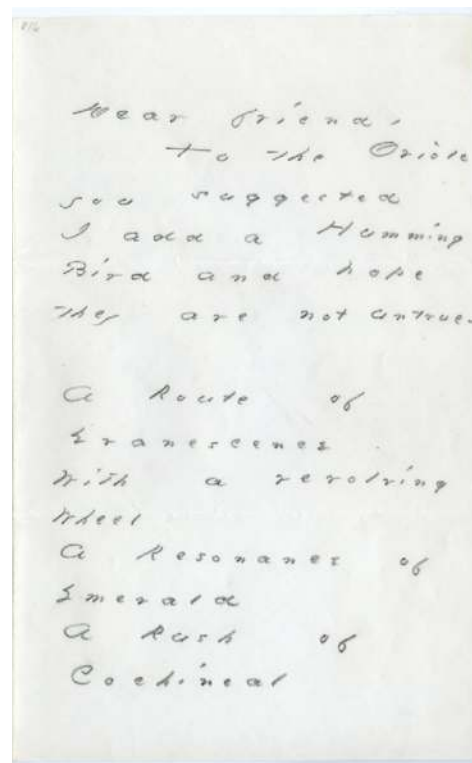 Dear friend,
To the Oriole
you suggested
I add a Humming
Bird and hope
they are not untrue.
A Route of
Evanescence
With a revolving
Wheel
A Resonance of
Emerald
A Rush of
Cochineal